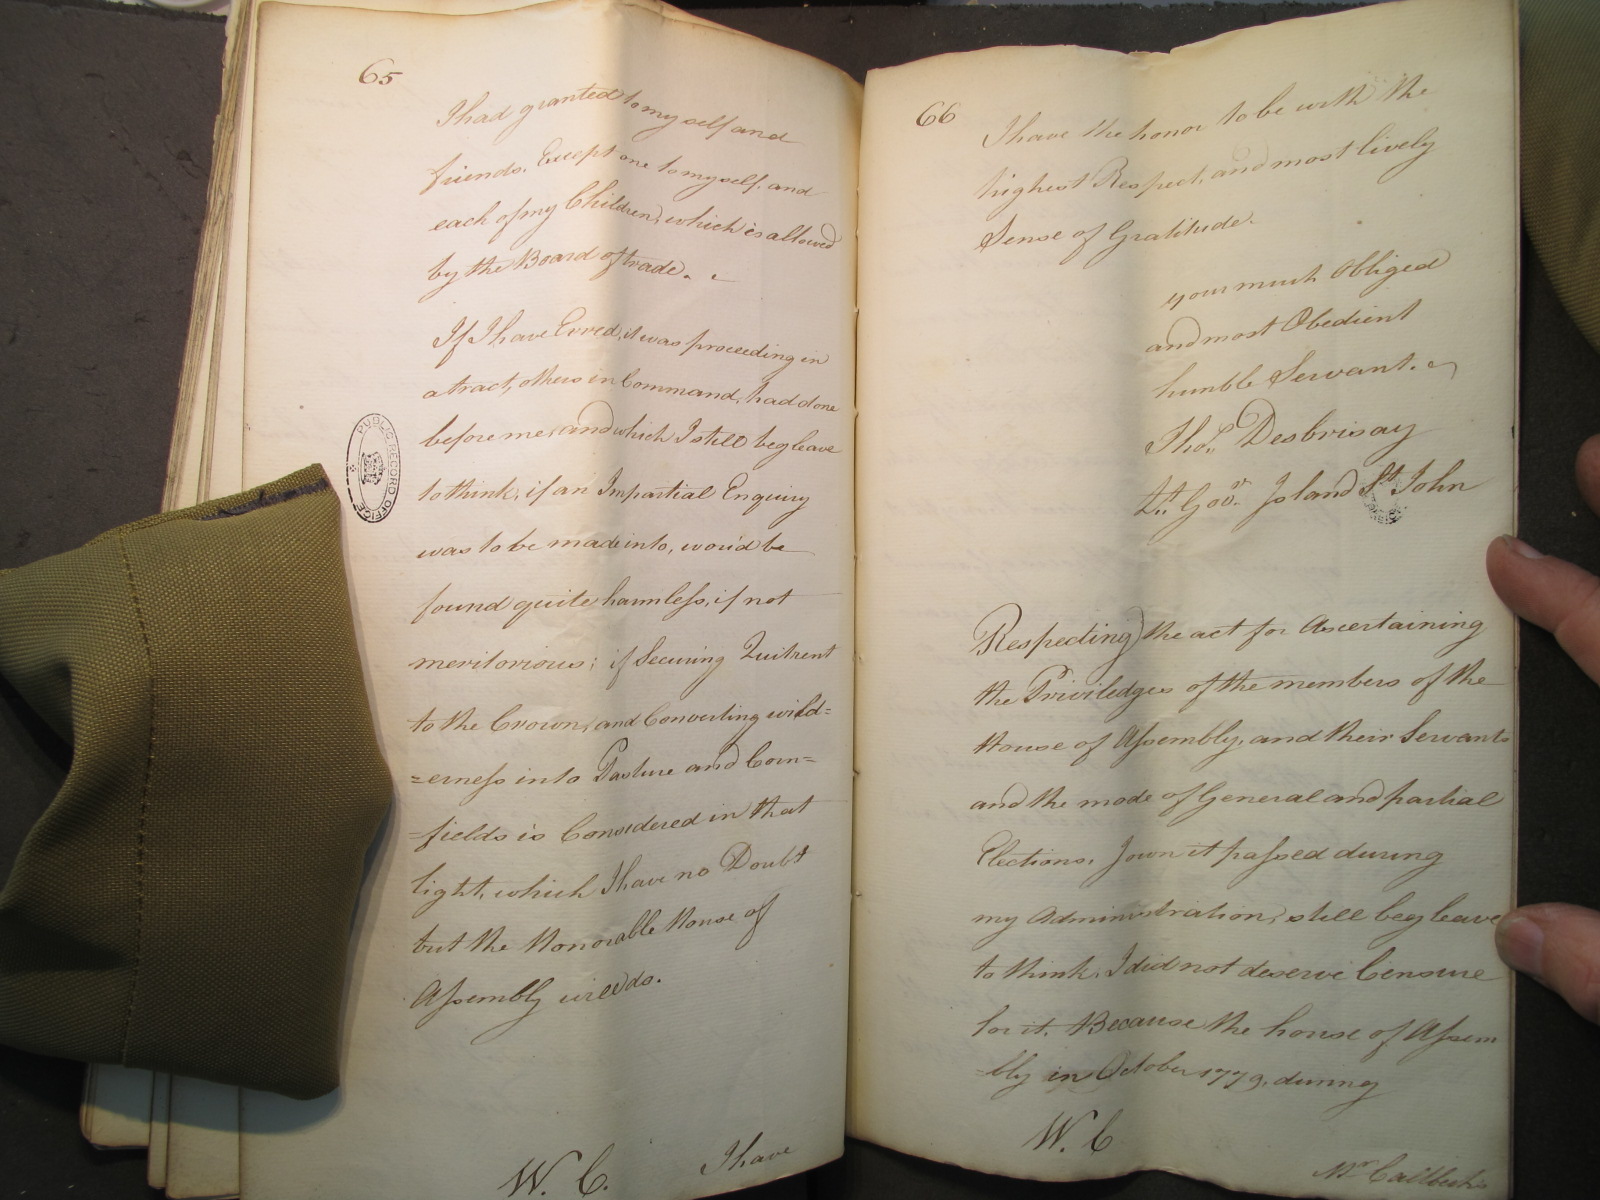 65
I had granted to my self and
friends. Except one to myself, and
each of my Children, which is allowed
by the Board of trade.
If I have Erred, it was proceeding in
a tract, others in Command, had done
before me, and which I still beg leave
to think, if an Impartial Enquiry
was to be made into, wou'd be
found quite harmless, if not
meritorious; if Securing Quitrent
to the Crown, and Converting wild=
=erness into Pasture and Corn=
=fields is Considered in that
light, which I have no Doubt
but the Honorable House of
Assembly will do.
W. C.
I have
PUBLIC RECORD OFFICE
66
I have the honor to be with the
highest Respect, and most lively
Sense of Gratitude.
your much Obliged
and most Obedient
humble Servant.
Tho.s Desbrisay
Lt. Gov.r Island St. John
Respecting the act for Ascertaining
the Priviledges of the members of the
House of Assembly, and their Servants
and the mode of General and partial
Elections. I own it passed during
my Administration, still beg leave
to think, I did not deserve Censure
for it. Because the house of Assem
=bly in October 1779, during
W. C
Mr. Callbeck's